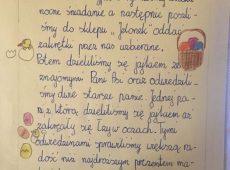 nocne śniadanie a następnie poszli-
śmy do sklepu „Jelonek" oddać
zakrętki przez nas uzbierane.
Potem dzieliliśmy się jajkiem ze
znajomymi Pani Bsi oraz odwiedzili-
śmy dwie starsze panie. Jednej pa-
ni z którą dzieliliśmy się jajkiem aż
zakręciły się łzy w oczach. Tymi
odwiedzinami sprawiliśmy większą ra-
dość niż najdroższym prezentem ma-